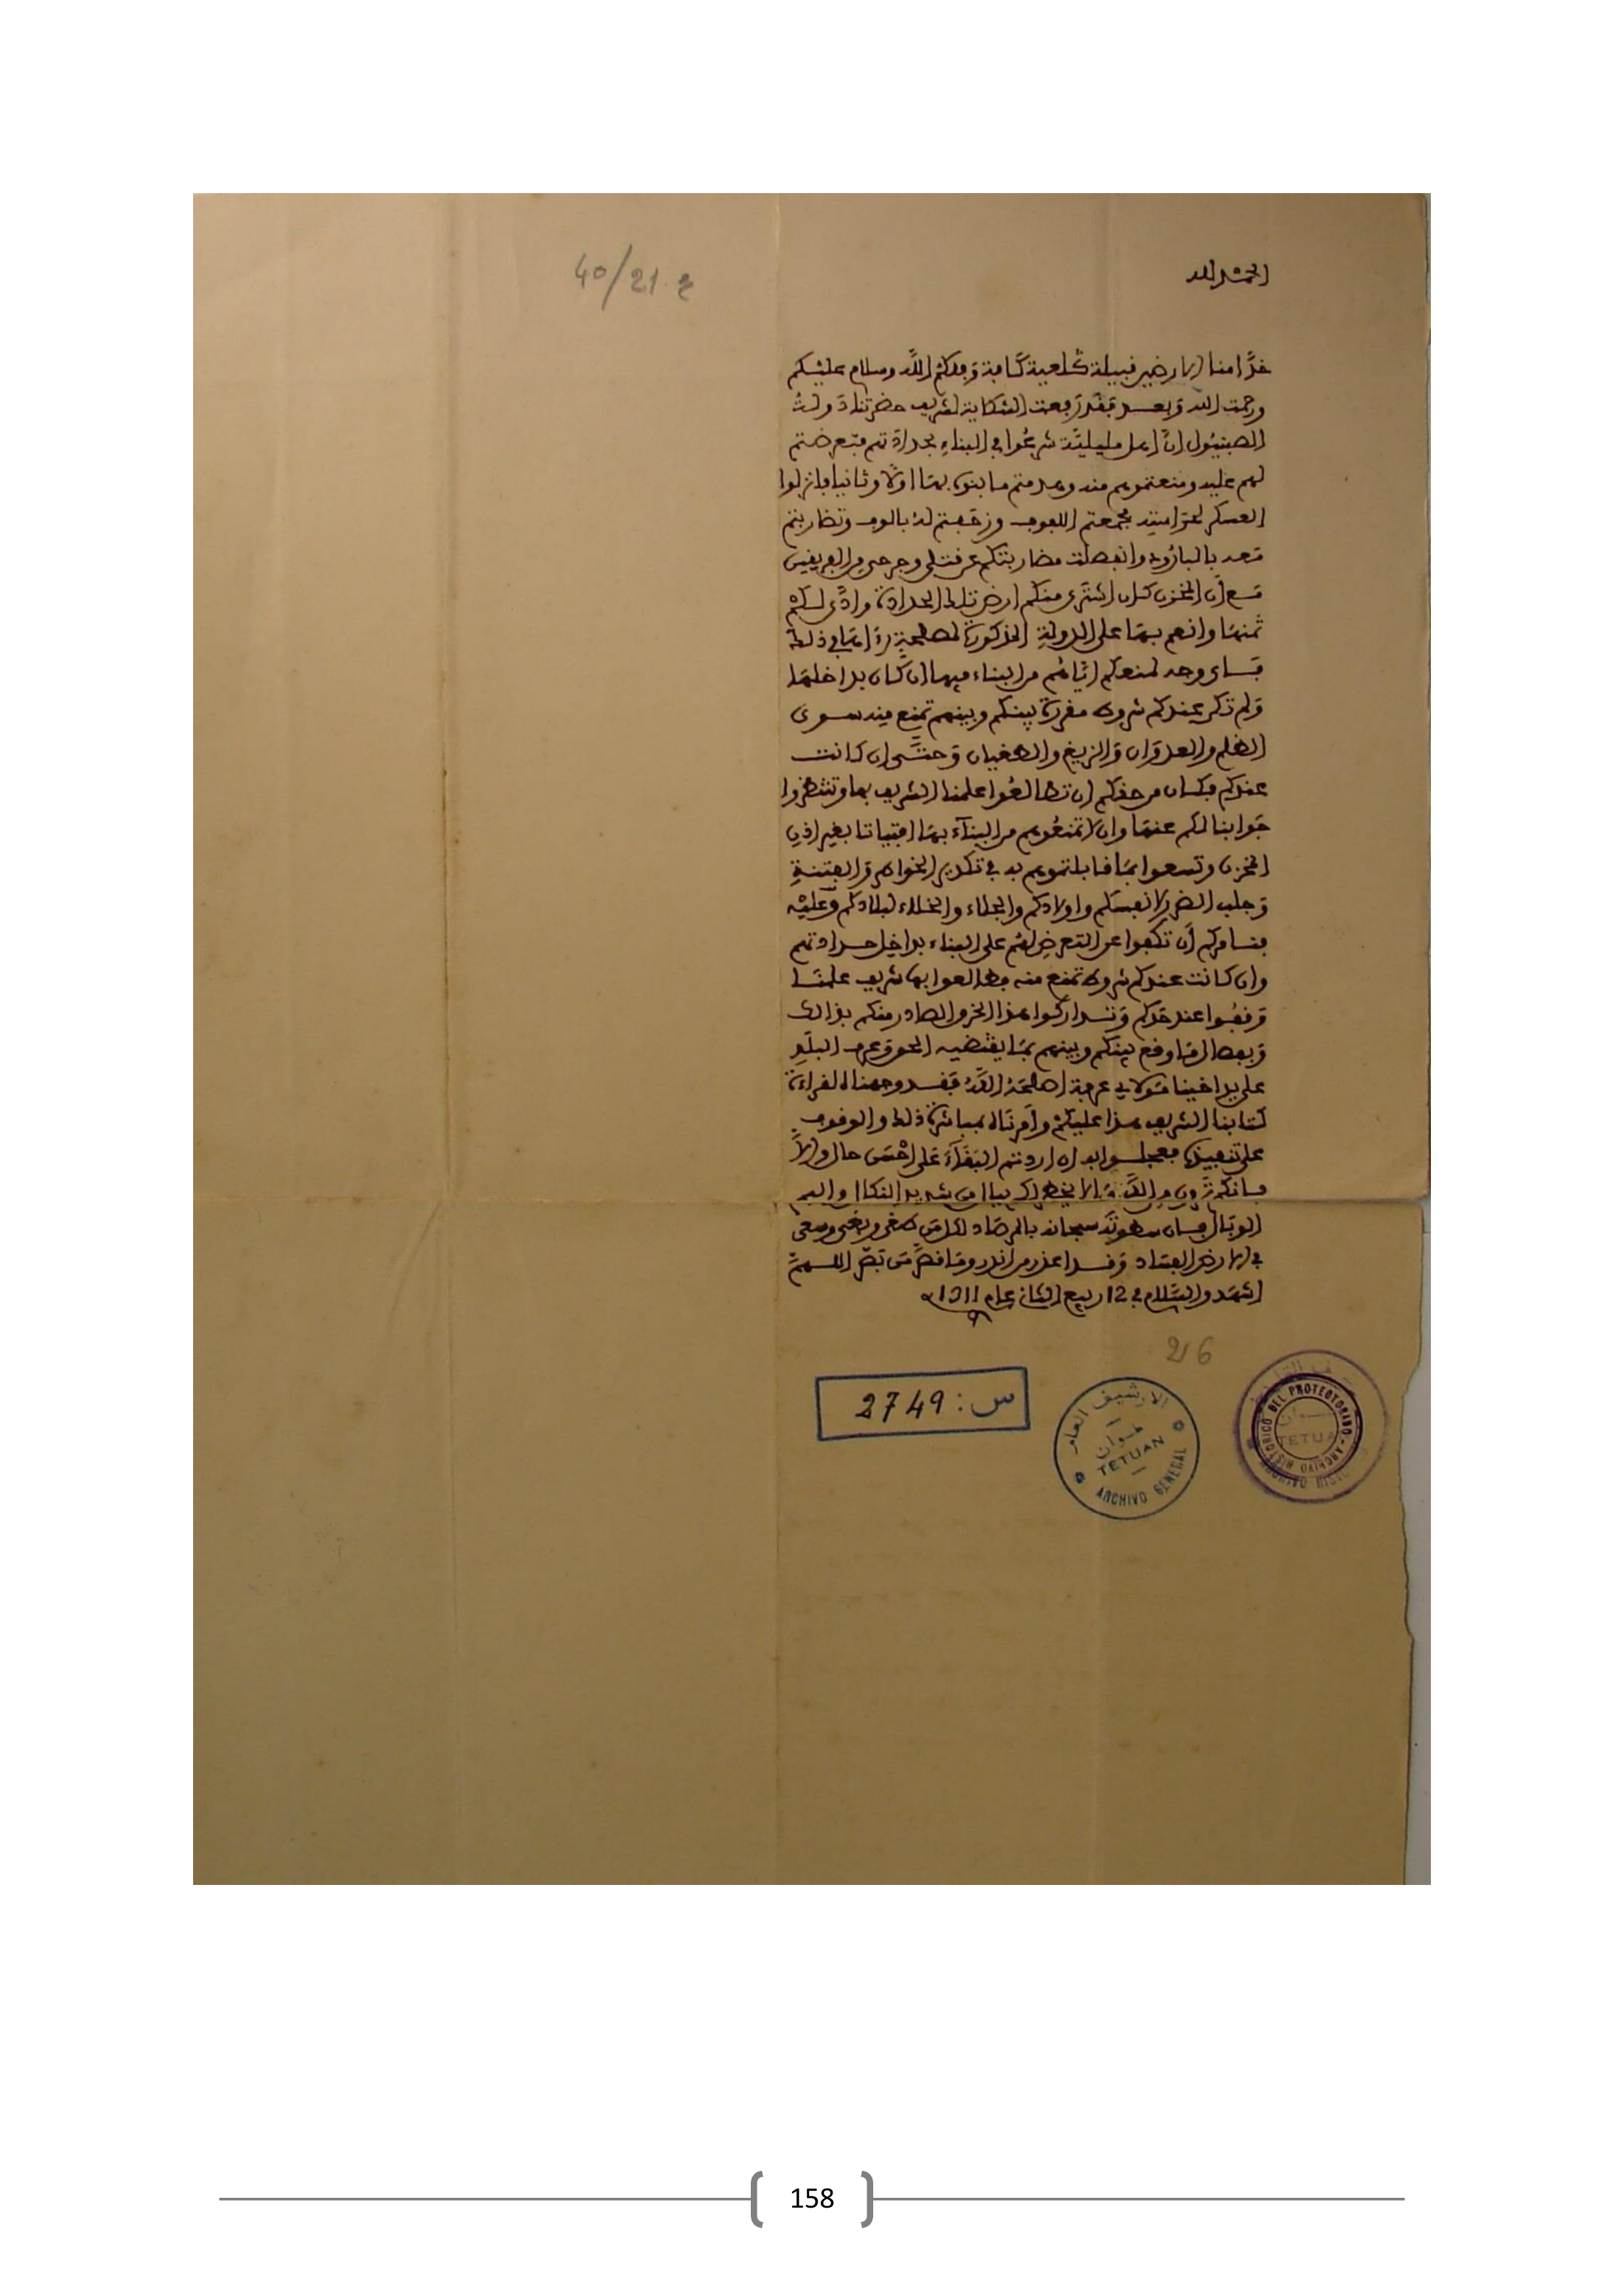 الحمد لله
40/21.ع
خدامنا الارضين قبيلة كلعية كافة وفقكم الله وسلام عليكم
ورحمت الله وبعد فقد رفعت الشكاية لشريف حضرتنا دولة
الصبنيول ان اهل مليلية شرعوا في البناء بحدادتهم فتعرضتم
لهم عليه ومنعتموهم منه وهدمتم ما بنوه بها اولا وثانيا فانزلوا
العسكر لحراسته فجمعتم اللفوف وزحفتم له بالوف وتضاربتم
معه بالبارود وانفصلت مضاربتكم عن قتلى وجرحى من الفريقين
مع ان المخزن كان اشترى منكم ارض تلك الحدادة وادى لكم
ثمنها وانعم بها على الدولة المذكورة لمصلحة رءاها في ذلك
فاى وجه لمنعكم اياهم من البناء فيها ان كان بداخلها
ولم تكن عندكم شروط مقررة بينكم وبينهم تمنع منه سوى
الظلم والعدوان والزيغ والطغيان وحتى ان كانت
عندكم فكان من حقكم ان تطالعوا علمنا الشريف بها وتنتظروا
جوابنا لكم عنها وان لا تمنعوهم من البناء بها افتياتا بغير اذن
المخزن وتسعوا بما قابلتموهم به في تكدير الخواطر والفتنة
وجلب الضرر لانفسكم واولادكم والجلاء والخلاء لبلادكم وعليه
فنامركم أن تكفوا عن التعرض لهم على البناء بداخل حدادتهم
وان كانت عندكم شروط تمنع منه فطالعوا بها شريف علمنا
وقفوا عند حدكم وتداركوا هذا الخرق الصادر منكم بذالك
وبفصال ما وقع بينكم وبينهم بما يقتضيه الحق وعرف البلد
على يد اخينا مولاي عرفة اصلحه الله فقد وجهناه لقراءة
كتابنا الشريف هذا عليكم وأمرناه بمباشرة ذلك والوقوف
على تنفيذه فعجلوا به ان اردتم البقاء على احسن حال والا
فانكم ترون من الله ما لا يخطر لكم ببال من شديد النكال واليم
الوبال فان سطوته سبحانه بالمرصاد لكل من طغى وبغى وسعى
في الارض بالفساد وقد اعذر من انذر وما قصر من بصر اللهم
اشهد والسلام في 12 ربيع الثاني عام 1311
216
س: 2749
الارشيف العام
تطوان
TETUAN
ARCHIVO GENERAL
DEL PROTECTORADO - ARCHIVO HISTORICO